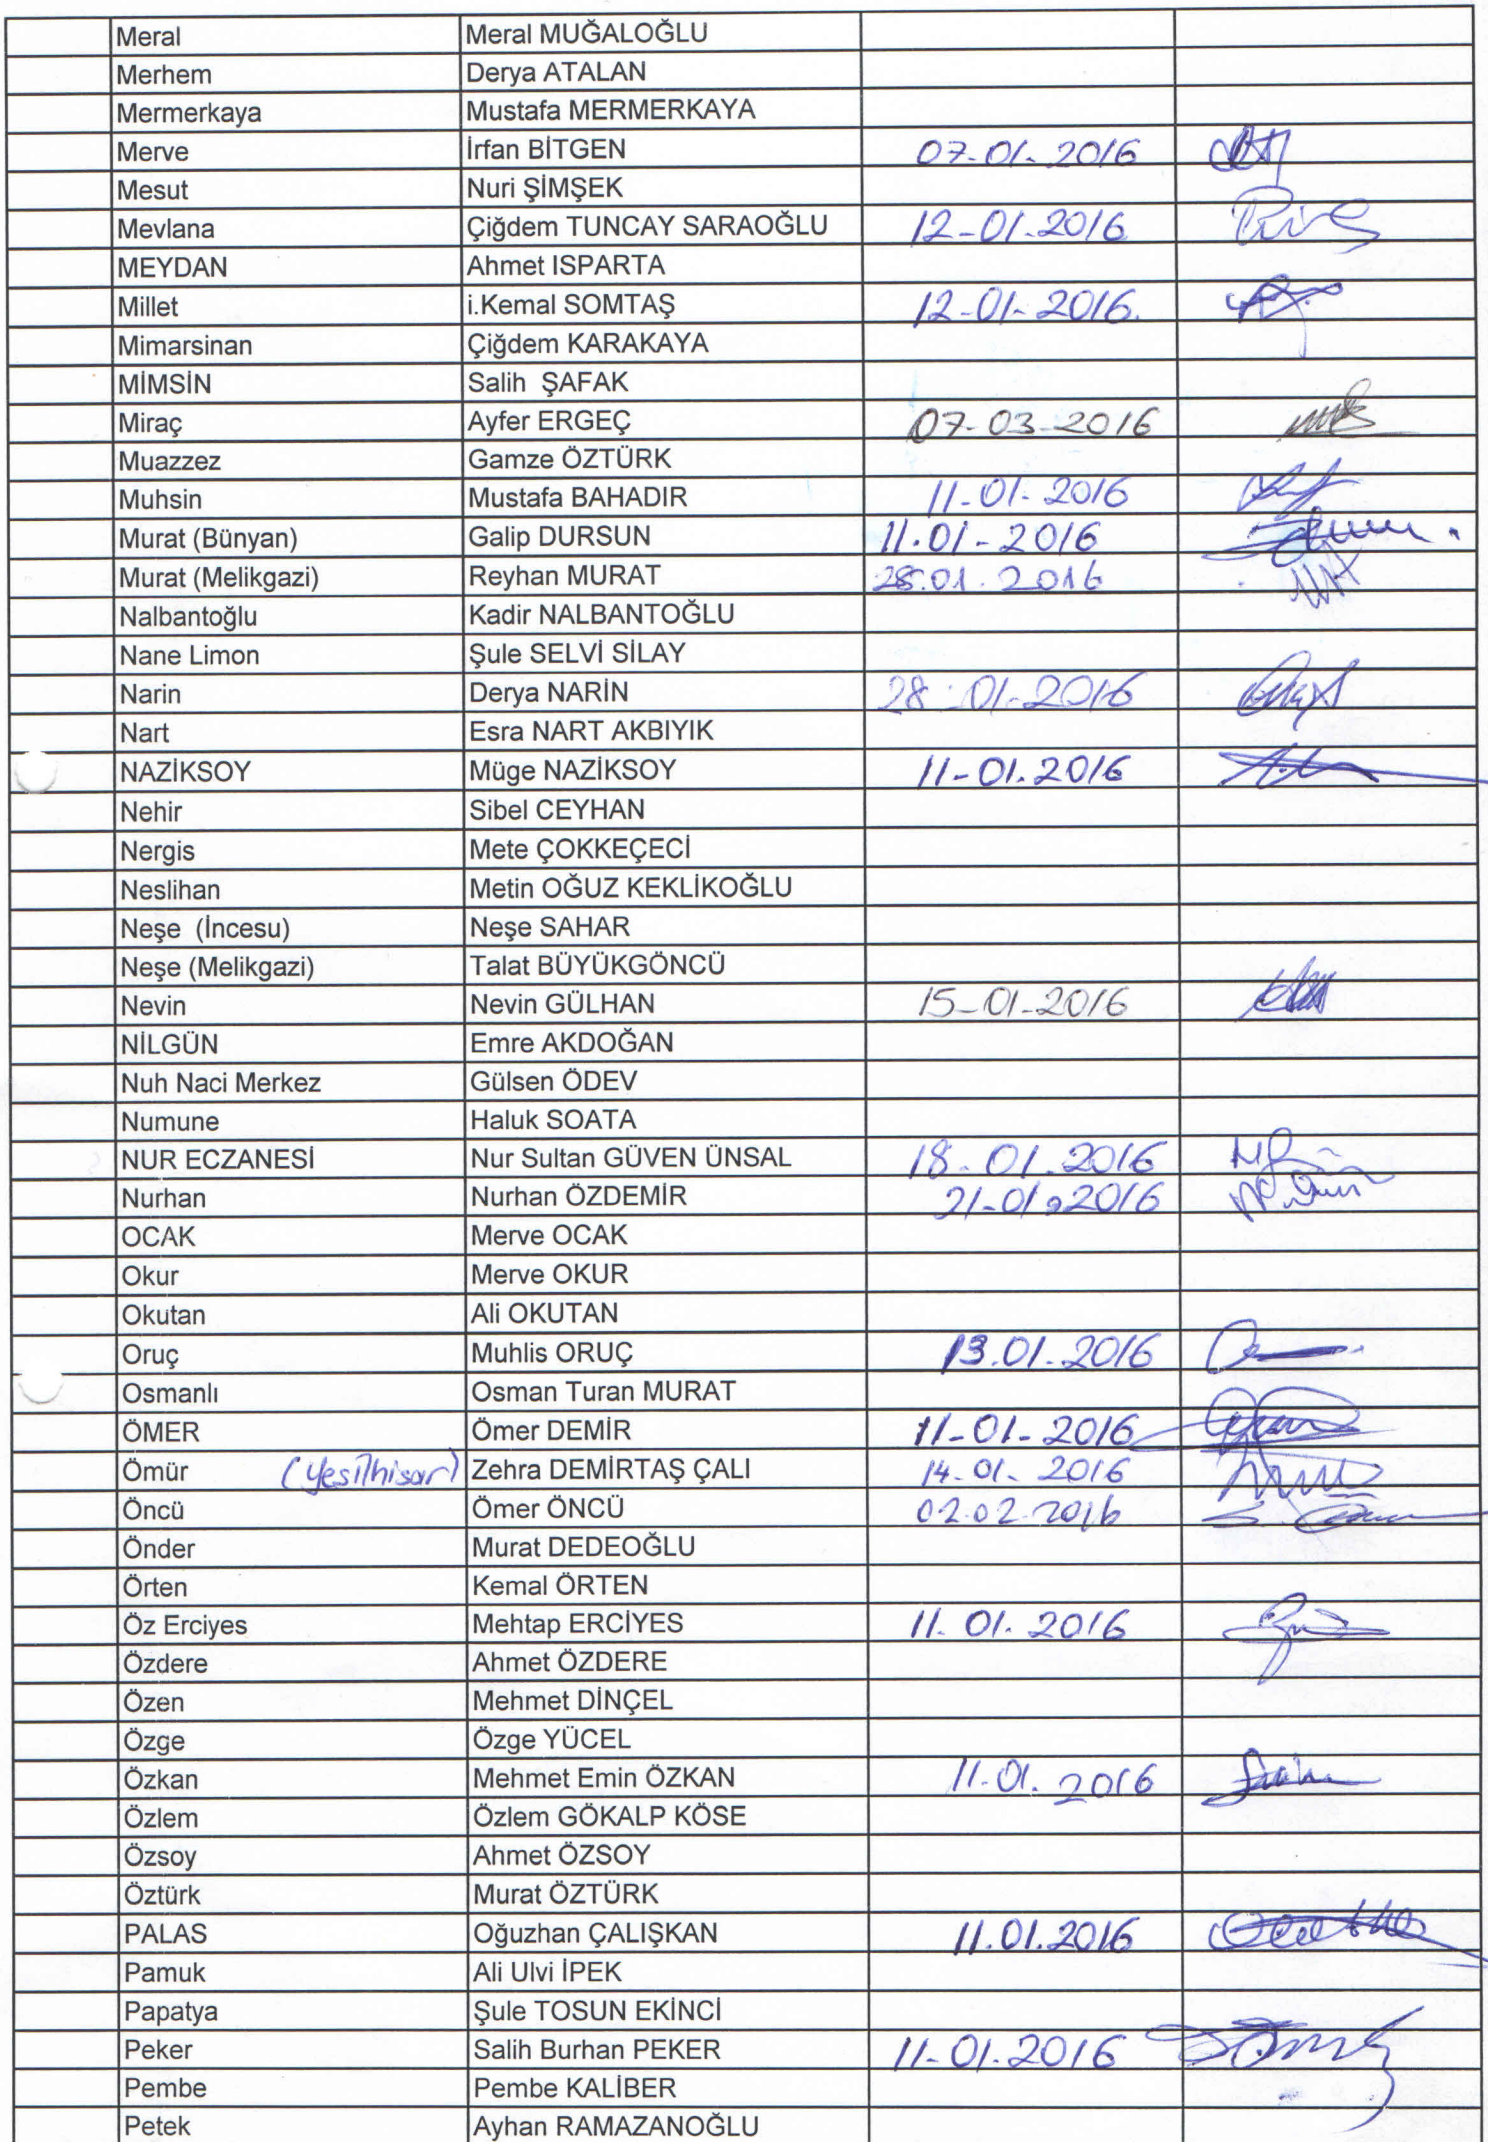 Meral Meral MUĞALOĞLU
Merhem Derya ATALAN
Mermerkaya Mustafa MERMERKAYA
Merve İrfan BİTGEN 07-01-2016
Mesut Nuri ŞİMŞEK
Mevlana Çiğdem TUNCAY SARAOĞLU 12-01-2016
MEYDAN Ahmet ISPARTA
Millet i.Kemal SOMTAŞ 12-01-2016.
Mimarsinan Çiğdem KARAKAYA
MİMSİN Salih ŞAFAK
Miraç Ayfer ERGEÇ 07-03-2016
Muazzez Gamze ÖZTÜRK
Muhsin Mustafa BAHADIR 11-01-2016
Murat (Bünyan) Galip DURSUN 11.01-2016
Murat (Melikgazi) Reyhan MURAT 28.01.2016
Nalbantoğlu Kadir NALBANTOĞLU
Nane Limon Şule SELVİ SİLAY
Narin Derya NARİN 28-01-2016
Nart Esra NART AKBIYIK
NAZİKSOY Müge NAZİKSOY 11-01.2016
Nehir Sibel CEYHAN
Nergis Mete ÇOKKEÇECİ
Neslihan Metin OĞUZ KEKLİKOĞLU
Neşe (İncesu) Neşe SAHAR
Neşe (Melikgazi) Talat BÜYÜKGÖNCÜ
Nevin Nevin GÜLHAN 15-01-2016
NİLGÜN Emre AKDOĞAN
Nuh Naci Merkez Gülsen ÖDEV
Numune Haluk SOATA
NUR ECZANESİ Nur Sultan GÜVEN ÜNSAL 18-01.2016
Nurhan Nurhan ÖZDEMİR 21-01.2016
OCAK Merve OCAK
Okur Merve OKUR
Okutan Ali OKUTAN
Oruç Muhlis ORUÇ 13.01.2016
Osmanlı Osman Turan MURAT
ÖMER Ömer DEMİR 11-01-2016
Ömür (Yesilhisar) Zehra DEMİRTAŞ ÇALI 14-01-2016
Öncü Ömer ÖNCÜ 02.02.2016
Önder Murat DEDEOĞLU
Örten Kemal ÖRTEN
Öz Erciyes Mehtap ERCİYES 11.01.2016
Özdere Ahmet ÖZDERE
Özen Mehmet DİNÇEL
Özge Özge YÜCEL
Özkan Mehmet Emin ÖZKAN 11-01.2016
Özlem Özlem GÖKALP KÖSE
Özsoy Ahmet ÖZSOY
Öztürk Murat ÖZTÜRK
PALAS Oğuzhan ÇALIŞKAN 11.01.2016
Pamuk Ali Ulvi İPEK
Papatya Şule TOSUN EKİNCİ
Peker Salih Burhan PEKER 11-01.2016
Pembe Pembe KALİBER
Petek Ayhan RAMAZANOĞLU